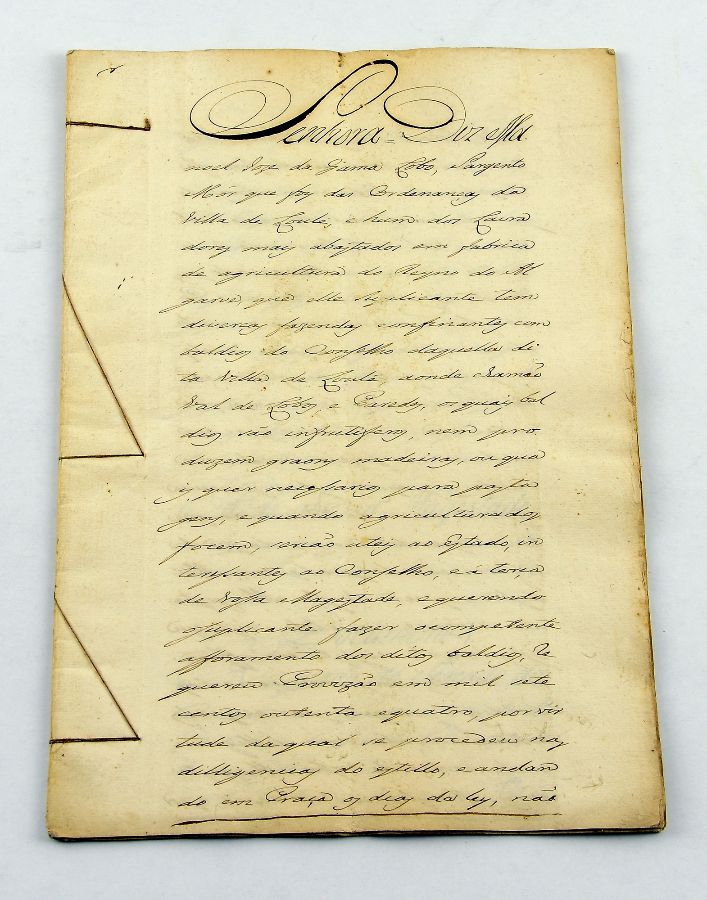 Senhora = Diz Ma
noel Joze da Gama Lobo, Sargento
Mór que foy das Ordenanças da
Villa de Loulé, e hum dos Lavra
dores mais abastados em fabrica
de agricultura do Reyno do Al
garve, que elle suplicante tem
diversas fazendas confinantes com
baldios do Conselho daquella di
ta Villa de Loulé, aonde chamão
Val de Lobos, e os quais bal
dios são infrutiferos, nem pro
duzem graons madeiras, ou qua
is quer necessarios para pasta
gens, e quando agriculturados
focem, serião uteis ao Estado, in
teressantes ao Conselho, e á terça
de Vossa Magestade, e querendo
o suplicante fazer o competente
afforamento dos ditos baldios, re
quereu Provizão em mil sete
centos outenta e quatro, por vir
tude da qual se procedeu nas
dilligencias do estillo, e andan
do em Praça os dias da ley, não